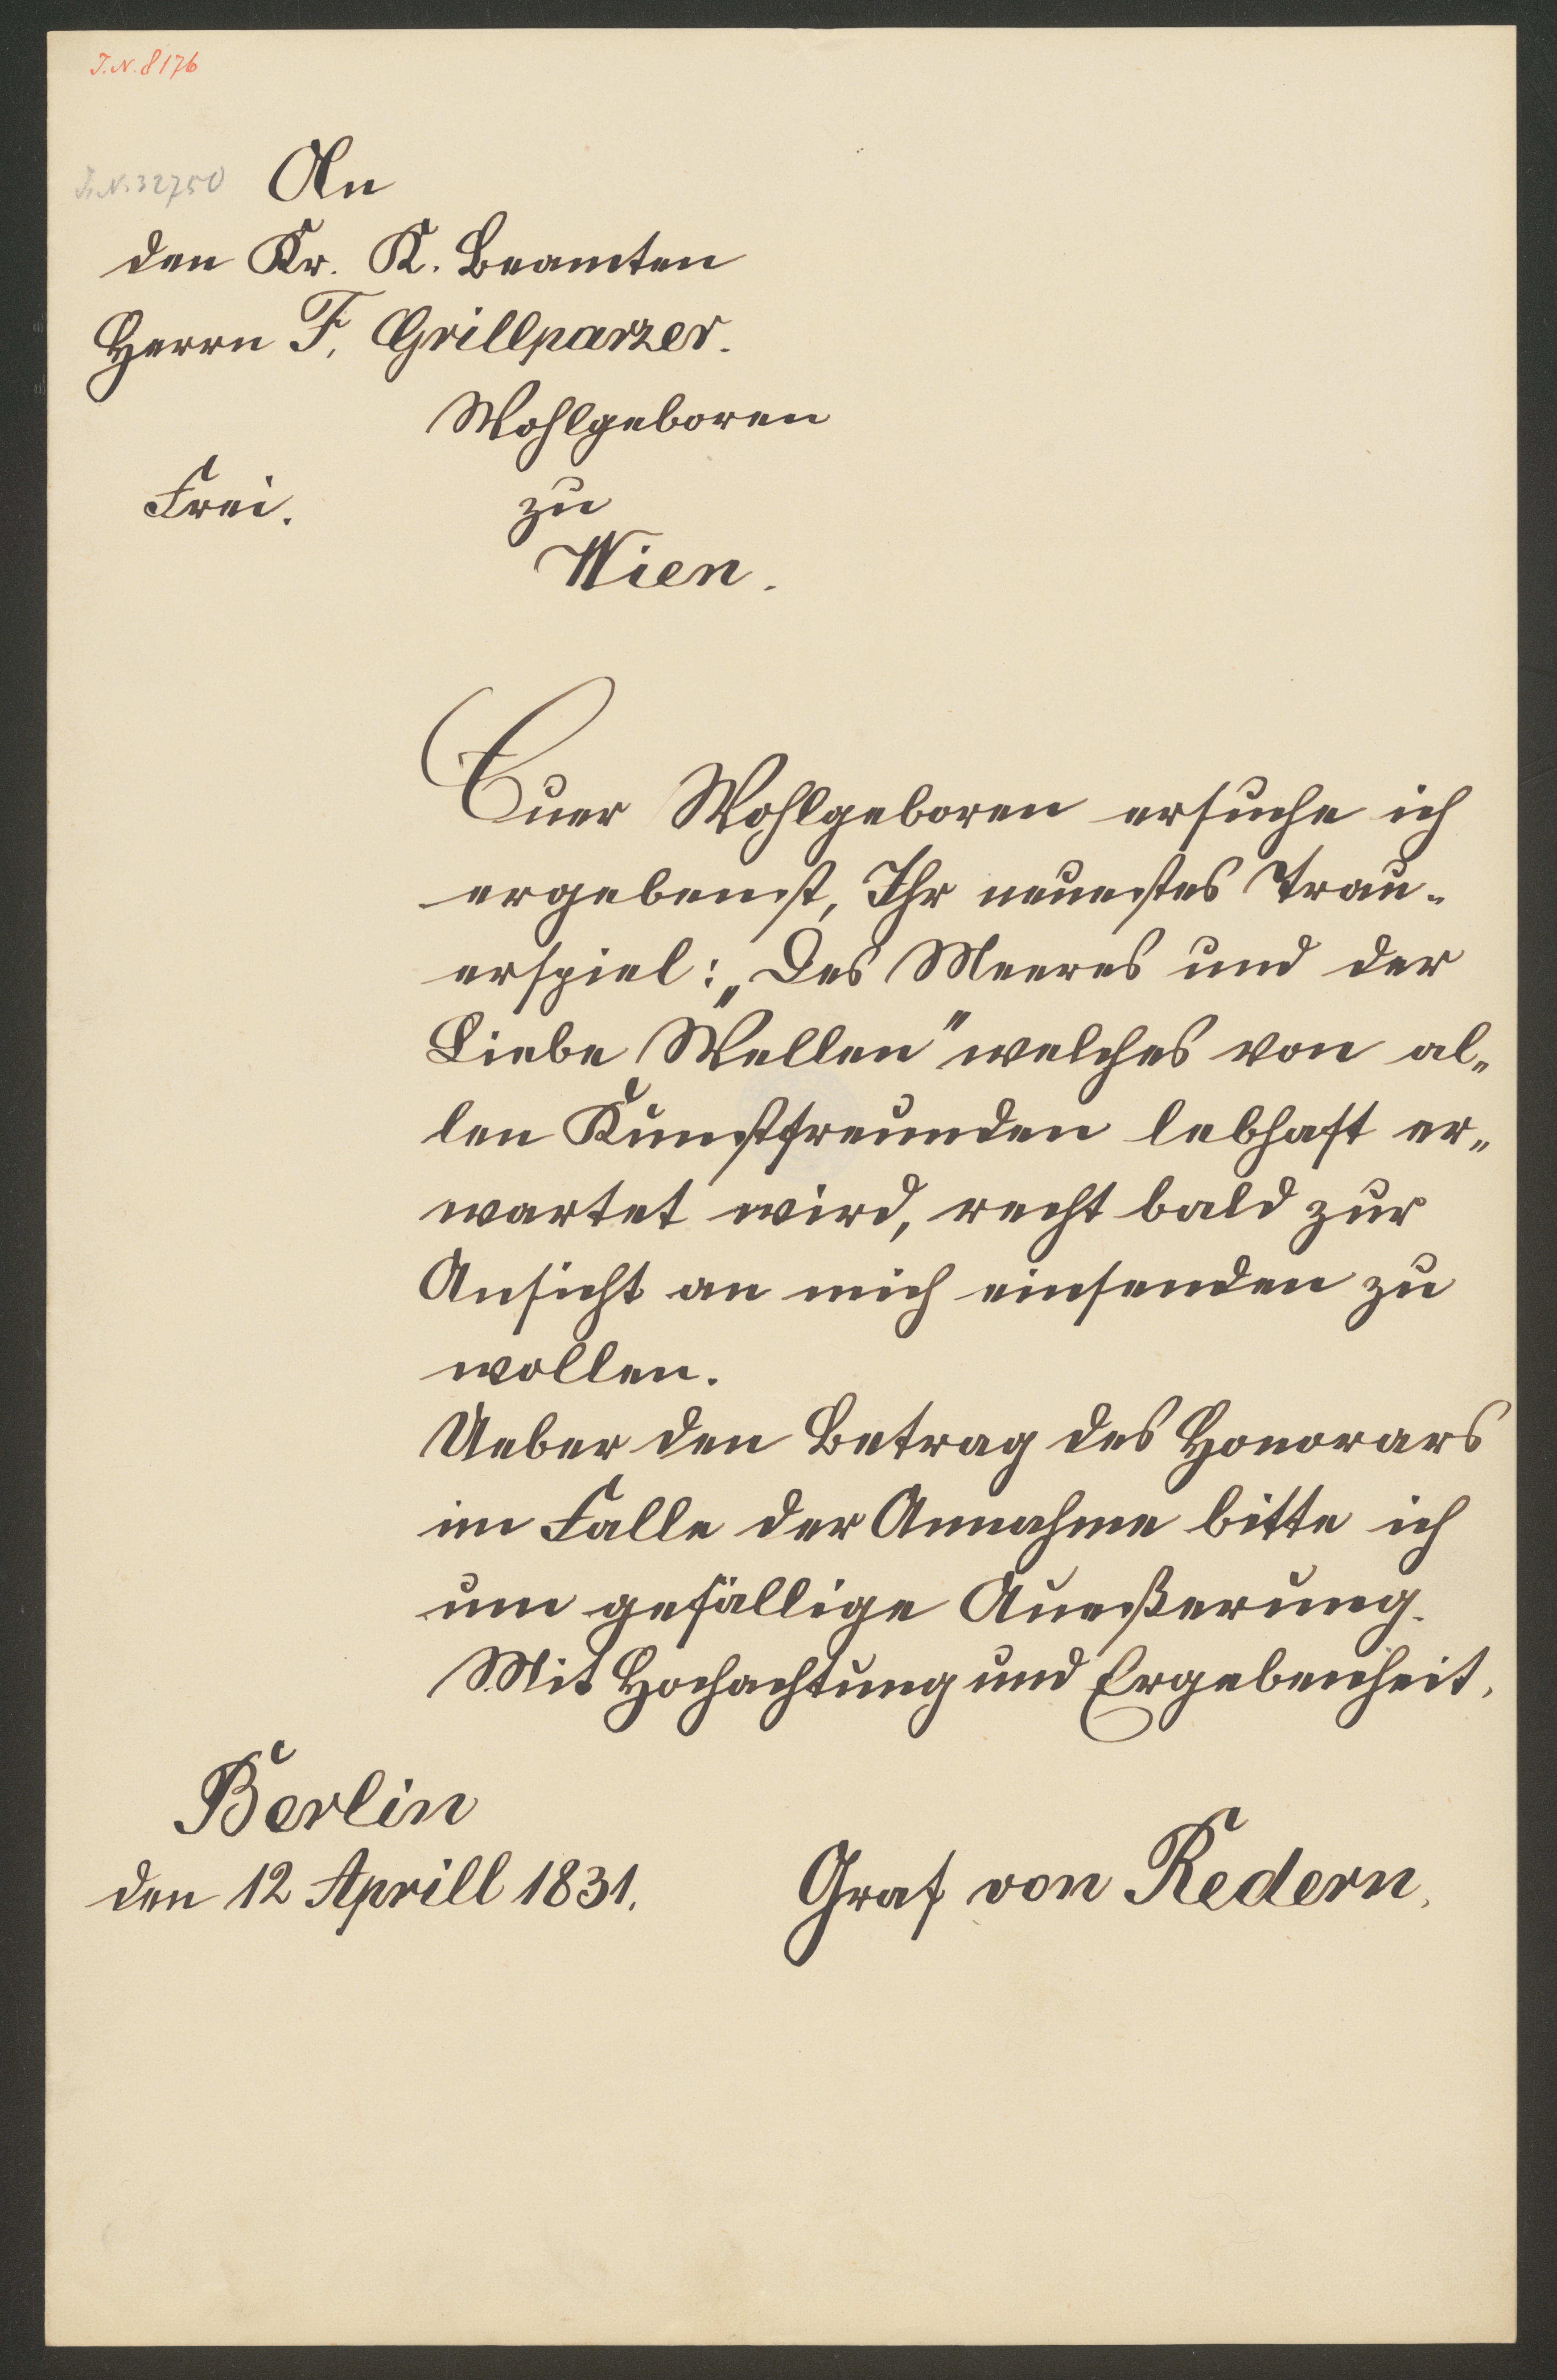 J.N. 8176
J.N. 32750
An
den Kr. K. Beamten
Herrn F. Grillparzer.
Wohlgeboren
Frei. zu
Wien.
Euer Wohlgeboren ersuche ich
ergebenst, Ihr neuestes Trau-
erspiel: „Des Meeres und der
Liebe Wellen" welches von al-
len Kunstfreunden lebhaft er-
wartet wird, recht bald zur
Ansicht an mich einsenden zu
wollen.
Ueber den Betrag des Honorars
im Falle der Annahme bitte ich
um gefällige Aueßerung.
Mit Hochachtung und Ergebenheit,
Berlin
den 12 Aprill 1831. Graf von Redern.